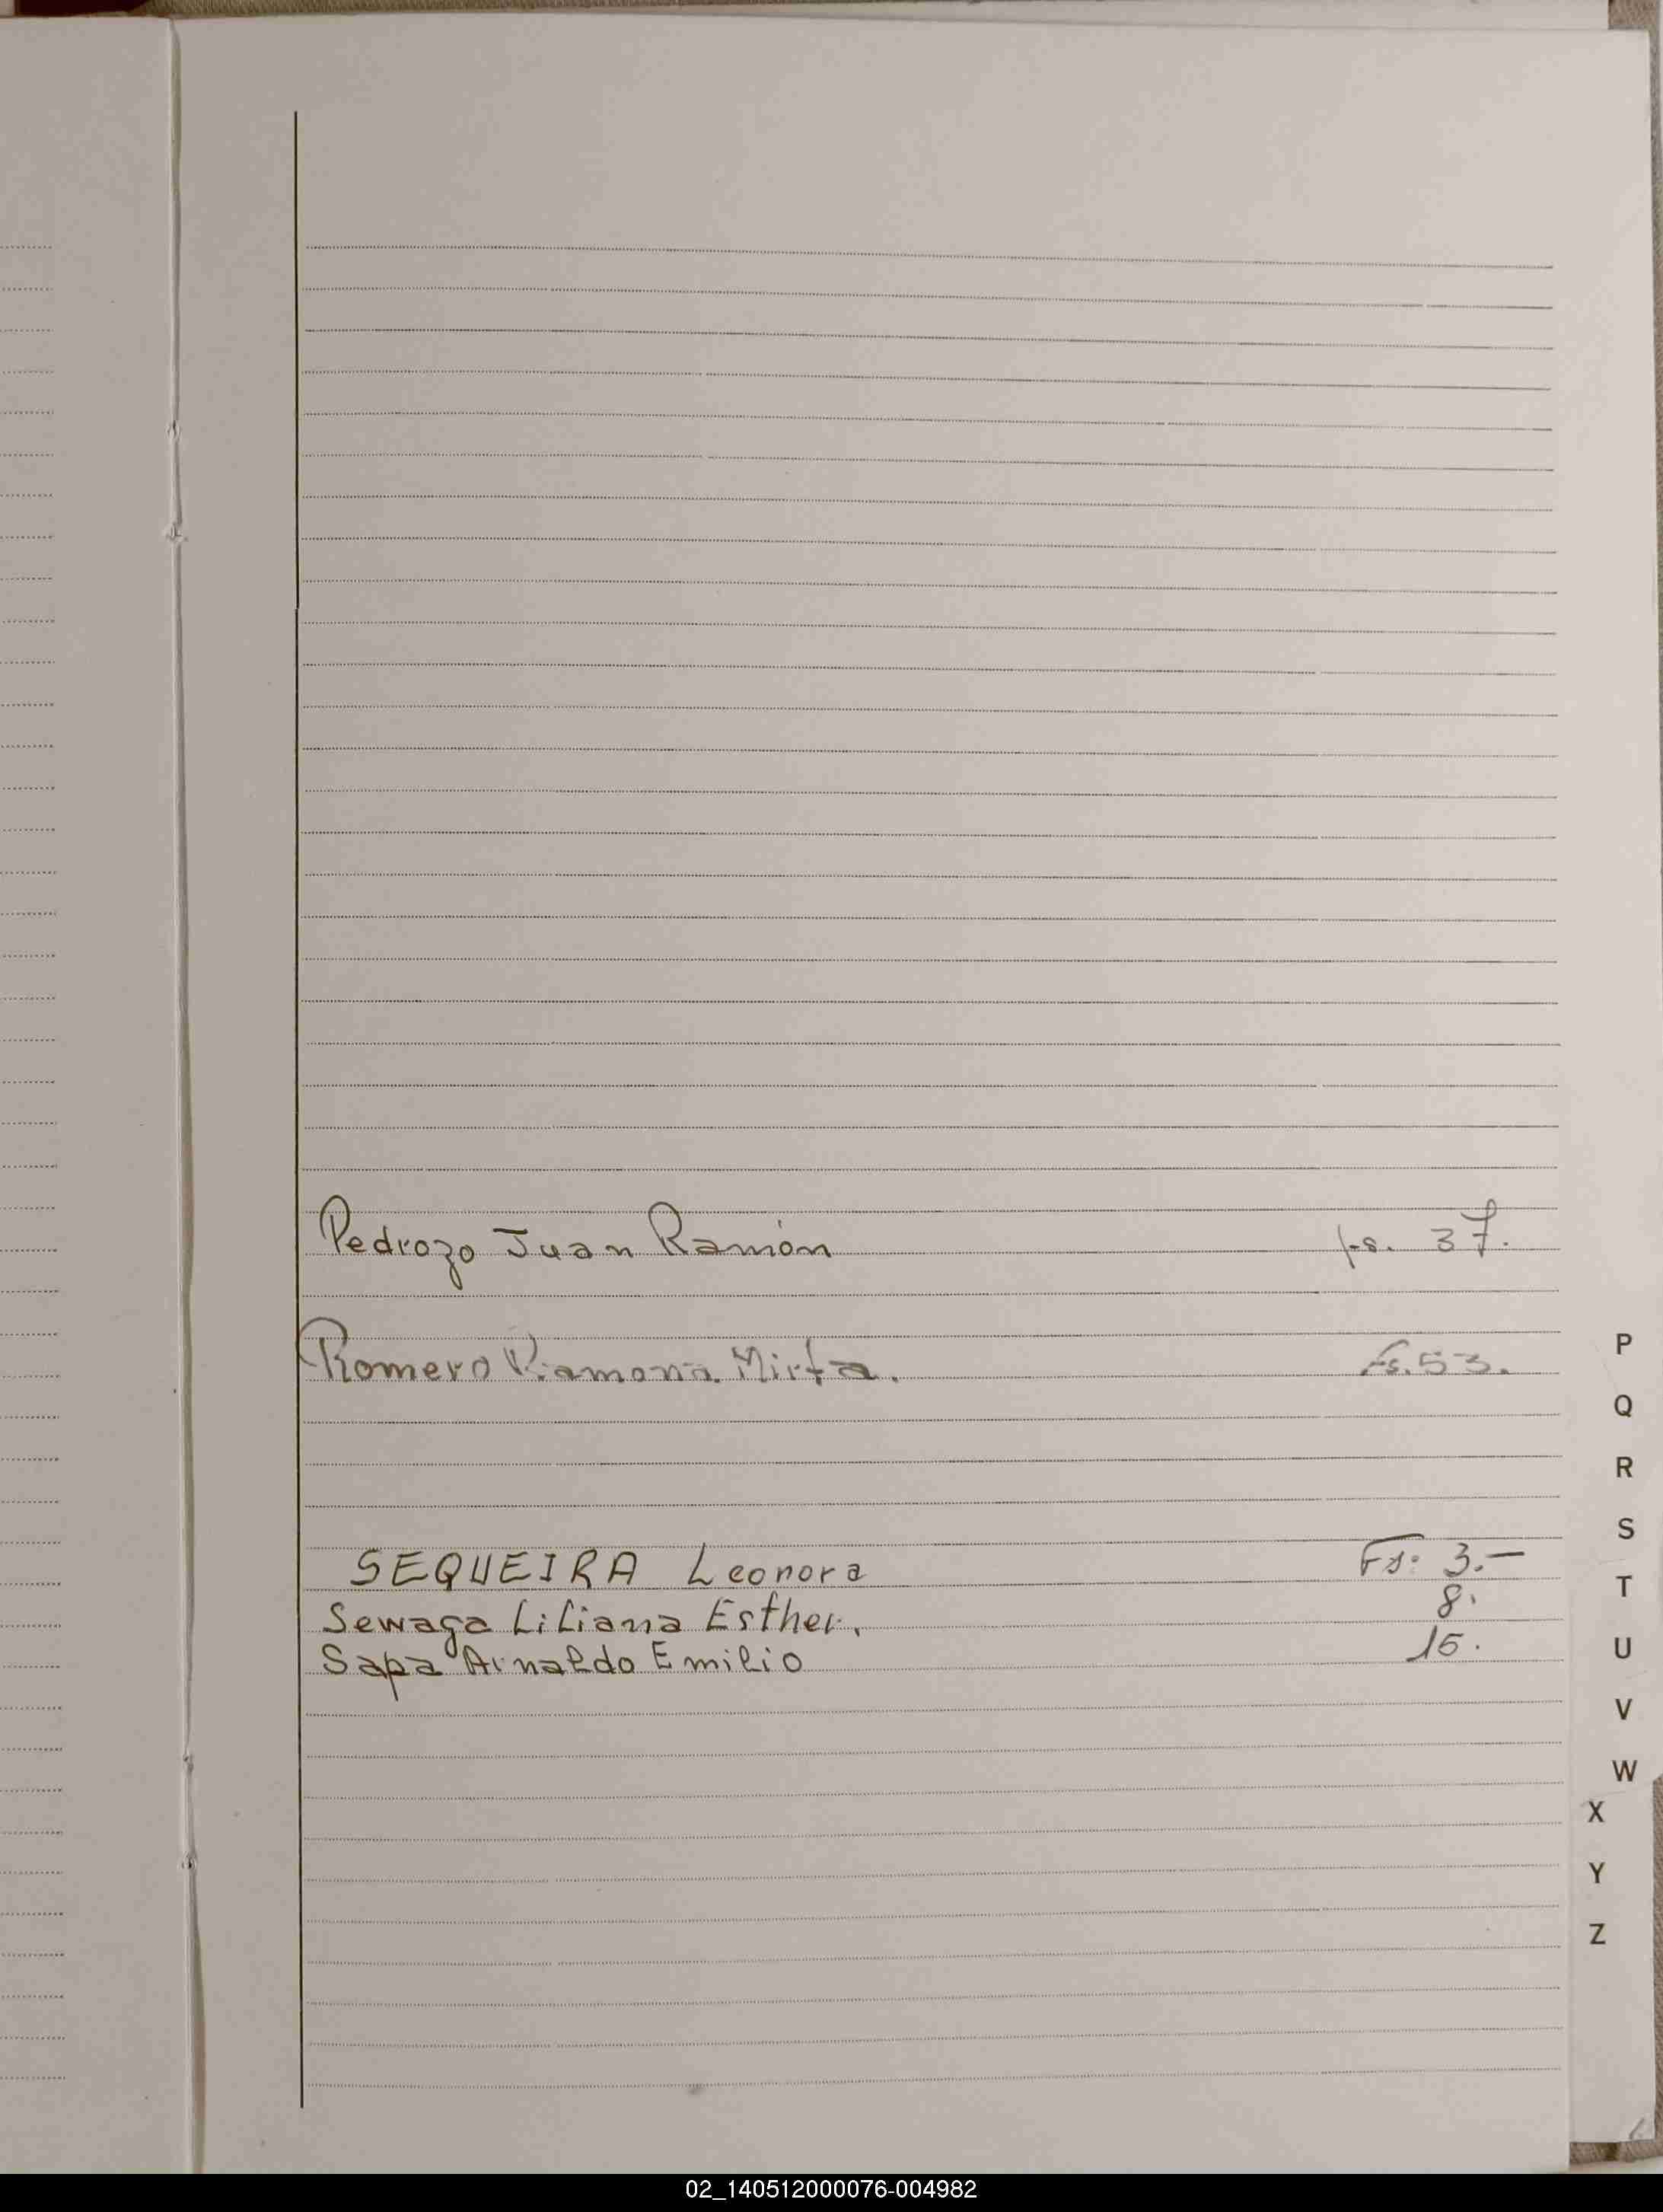 Pedrozo Juan Ramón fs. 37.
Romero Ramona Mirta. Fs. 53.
SEQUEIRA Leonora Fs: 3.—
Sewaga Liliana Esther. 8.
Sapa Arnaldo Emilio 15.
P
Q
R
S
T
U
V
W
X
Y
Z
02_140512000076-004982